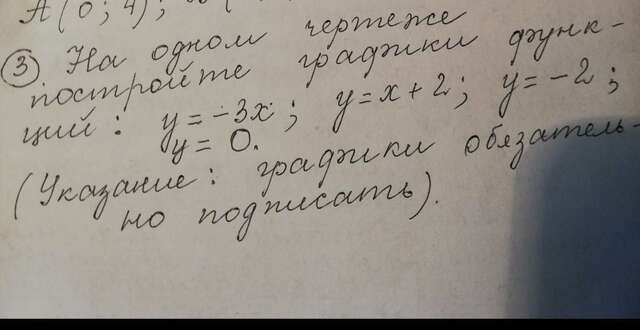 A(0; 4);
③ На одном чертеже
постройте графики функ-
ций: y = -3x; y = x + 2; y = -2;
y = 0.
(Указание: графики обязатель-
но подписать).